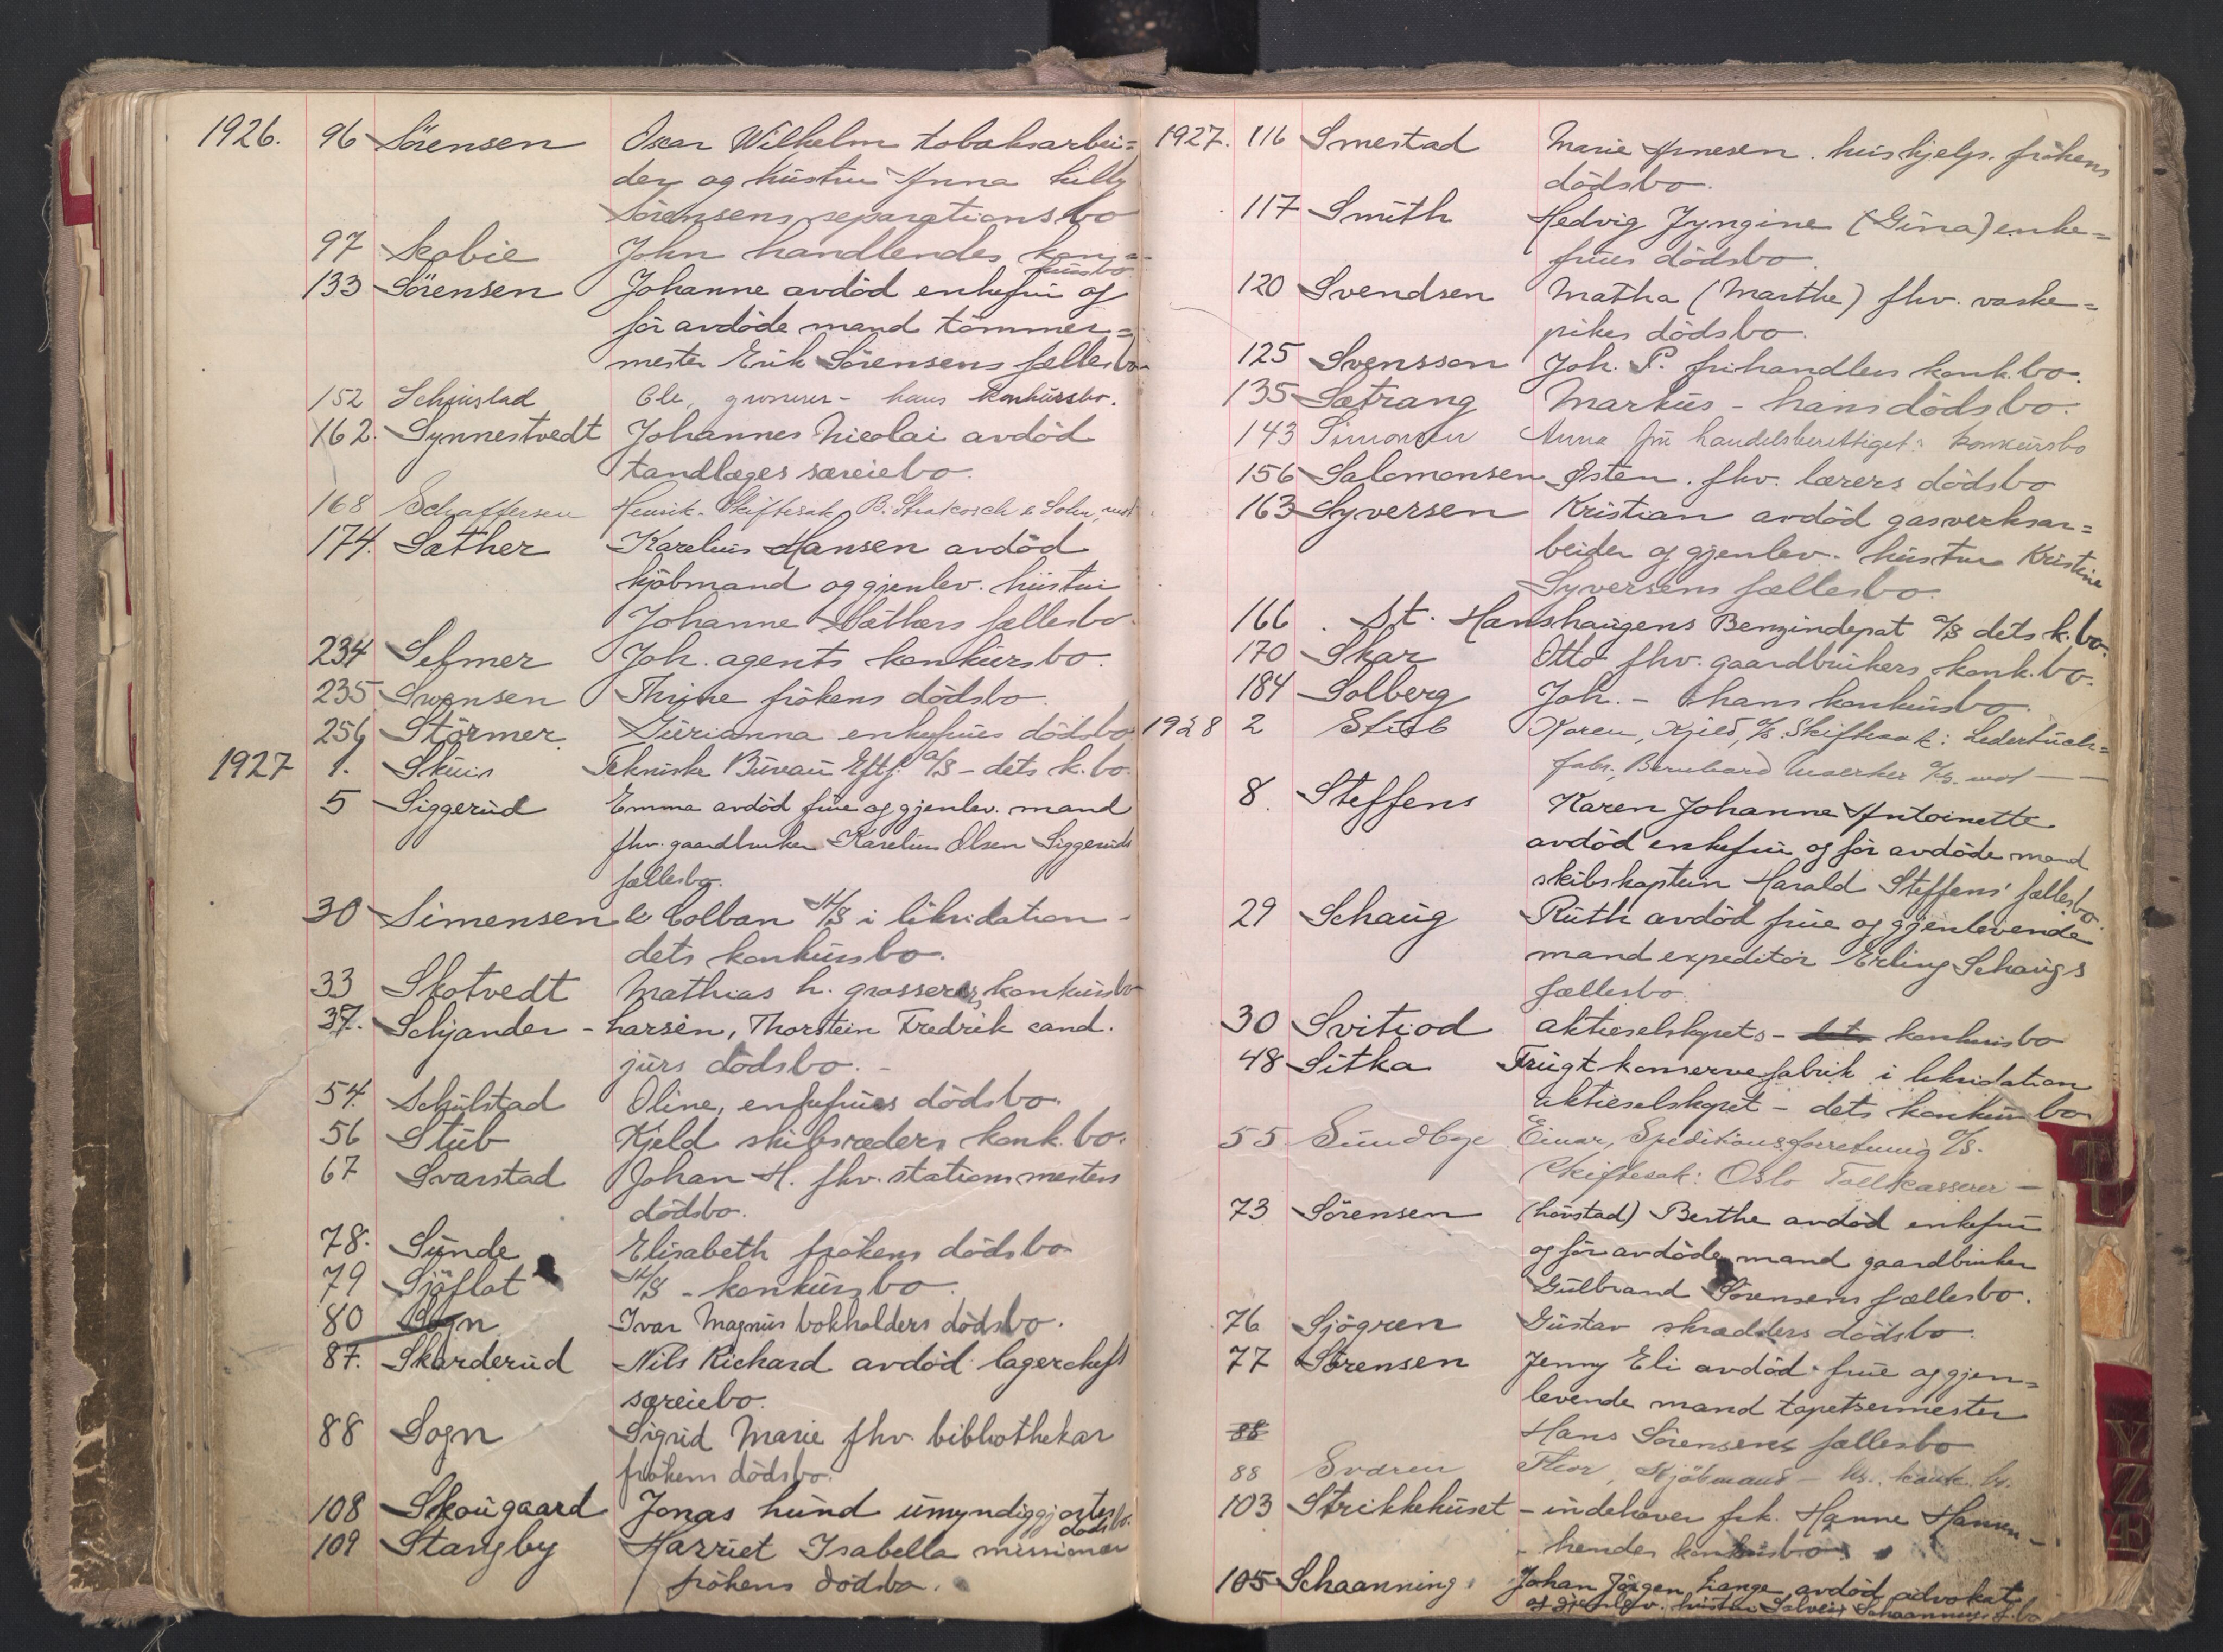 1926. 96 Sörensen Oscar Wilhelm tobaksarbei=
der og hustru Anna Lilly
Sörensens separationsbo
97 Skobie John handlendes kon=
kursbo
133 Sörensen Johanne avdöd enkefru og
för avdöde mand tömmer=
mester Erik Sörensens fællesbo
152 Schjustad Ole, grosserer - hans konkursbo.
162. Synnestvedt Johannes Nicolai avdöd
tandlæges særeiebo.
168 Schaffersen Henrik. Skiftesak B. Strakosch & Sohn, mot
174. Sæther Karelius Hansen avdöd
kjöbmand og gjenlev. hustru
Johanne Sæthers fællesbo.
234 Selmer Joh. agents konkursbo.
235 Svensen Thrine frökens dödsbo.
256 Störmer Gurianna enkefrues dödsbo
1927 1. Skuis Tekniske Bureau Eftf. A/S - dets k. bo.
5 Siggerud Emma avdöd frue og gjenlev. mand
fhv. gaardbruker Karelius Olsen Siggeruds
fællesbo.
30 Simensen & Colban A/S i likvidation -
dets konkursbo.
33 Skotvedt Mathias L. grosserers konkursbo
37. Schjander - Larsen, Thorstein Fredrik cand.
jurs dödsbo. -
54. Schulstad Oline, enkefrues dödsbo.
56 Stub Kjeld skibsreders konk. bo.
67 Svarstad Johan H. fhv. stationsmesters
dödsbo.
78. Sunde Elisabeth frökens dödsbo
79 Sjöflot A/S - konkursbo.
80 Sogn Ivar Magnus bokholders dödsbo.
87. Skarderud Nils Richard avdöd lagerchefs
særeiebo.
88 Sogn Sigrid Marie fhv. bibliothekar
frökens dödsbo.
108 Skougaard Jonas Lund umyndiggjortes
dödsbo.
109 Stangby Harriet Isabella missionær
frökens dödsbo.
1927. 116 Smestad Marie Arnesen. hushjelp. frökens
dödsbo.
117 Smith Hedvig Jyngine (Gina) enke=
frues dödsbo.
120 Svendsen Matha (Marthe) fhv. vaske=
pikes dödsbo.
125 Svensson Joh. P. frihandlers konk.bo.
135 Sætrang Markus - hans dödsbo.
143 Simonsen Anna fru handelsberettiget: konkursbo
156 Salomonsen Østen. fhv. lærers dödsbo
163 Syversen Kristian avdöd gasverksar=
beider og gjenlev. hustru Kristine
Syversens fællesbo.
166 . St. Hanshaugens Benzindepot A/S dets k. bo.
170 Skar Otto fhv. gaardbrukers konk.bo.
184 Solberg Joh. - hans konkursbo.
1928 2 Stub Karen, Kjeld, A/S. Skiftesak: Ledertuch=
fabr. Bernhard Maerker A/S. mot -
8. Steffens Karen Johanne Antoinette
avdöd enkefru og för avdöde mand
skibskaptein Harald Steffens' fællesbo.
29 Schaug Ruth avdöd frue og gjenlevende
mand expeditör Erling Schaugs
fællesbo.
30 Svitiod aktieselskapets - dets konkursbo
48 Sitka Frugt konservefabrik i likvidation
aktieselskapet - dets konkursbo
55 Sundbye Einar, Speditionsforretning A/S.
Skiftesak: Oslo Tollkasserer -
73 Sörensen (Lövstad) Berthe avdöd enkefru
og för avdöde mand gaardbruker
Gulbrand Sörensens fællesbo.
76 Sjögren Gustav skrædders dödsbo.
77 Sörensen Jenny Eli avdöd frue og gjen=
levende mand tapetsermester
88 Hans Sörensens fællesbo
88 Svaren Thor, Kjöbmand - hs. konk. bo.
103 Strikkehuset - indehaver frk. Hanne Hansen -
- hendes konkursbo
105 Schaanning. Johan Jörgen Lange avdöd advokat
og gjenlev. hustru Solveig Schaannings f. bo
TU
YZÆ